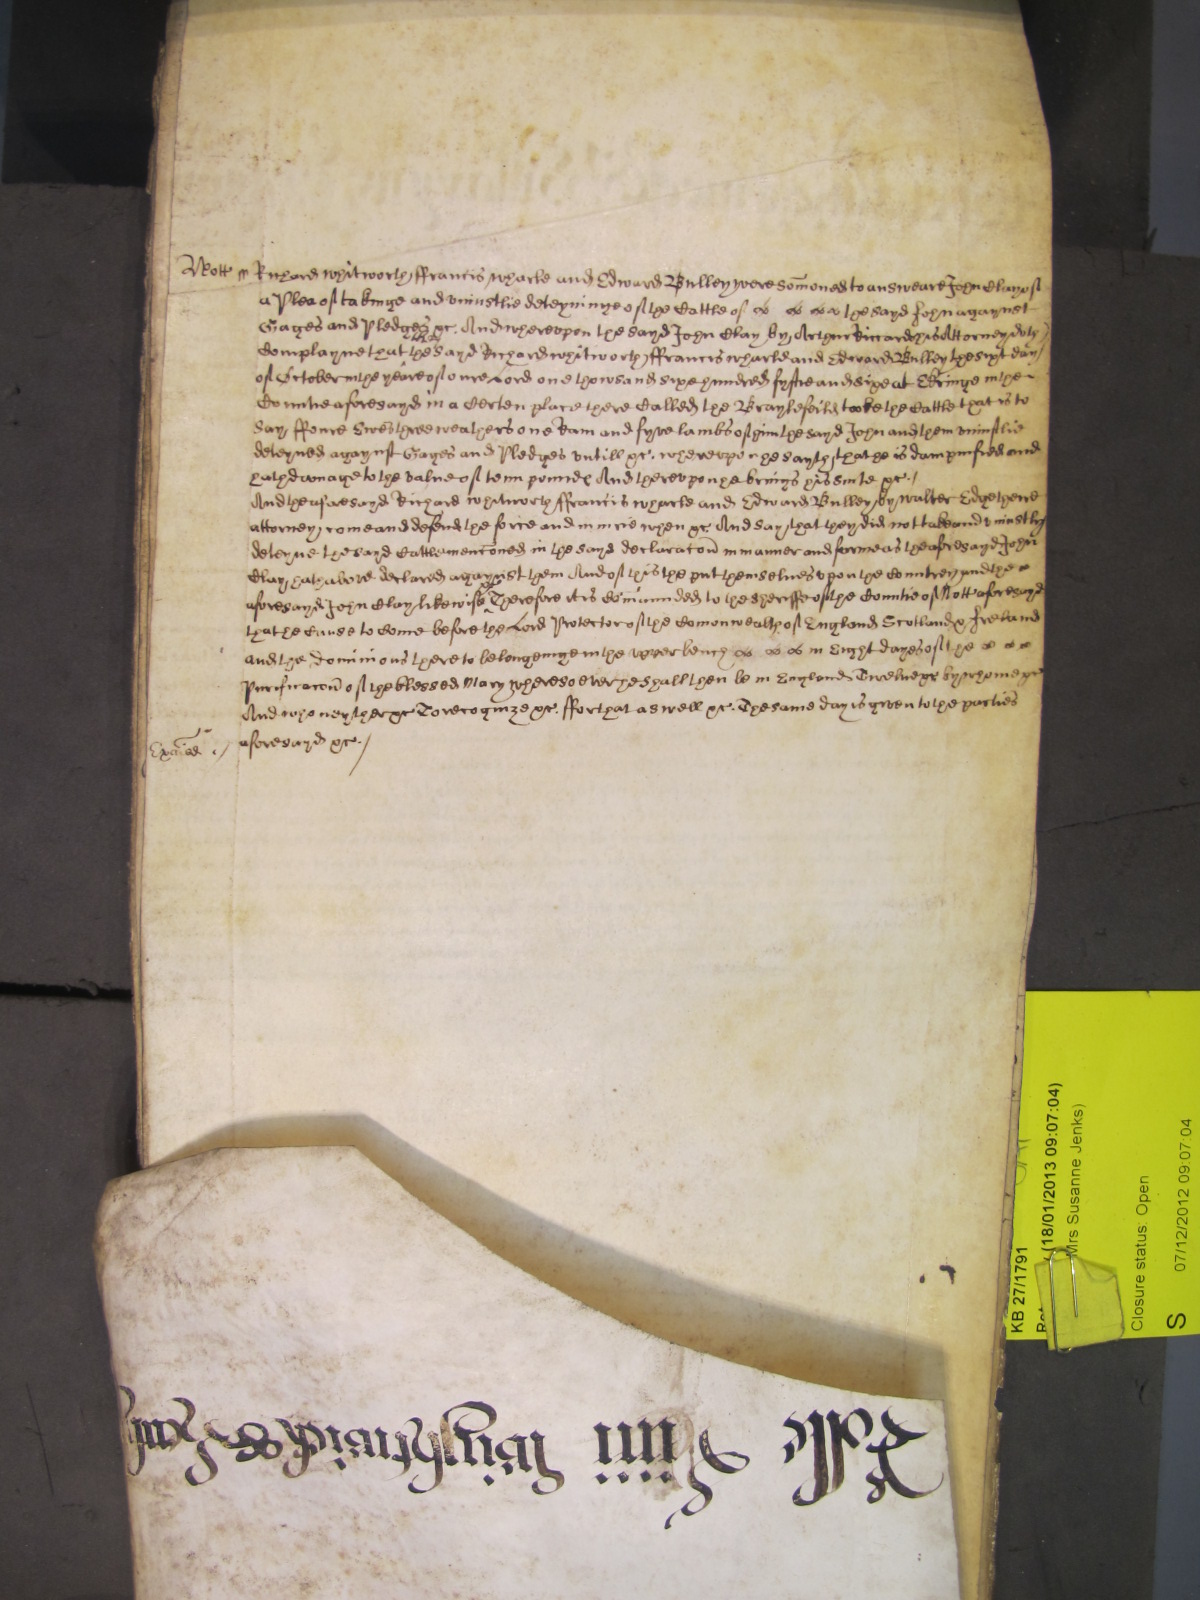 Nott ss Richard Whitworth ffrancis wharle and Edward Bulley were som̄oned to answeare John Clay of
a Plea of takinge and uniustlie deteyninge of the Cattle of the sayd John agaynst
Gages and Pledges &c. And whereupon the sayd John Clay by Arthur Riccard his Attorney doth
Complayne that the sayd Richard whitworth ffrancis wharle and Edward Bulley the sixt day
of October in the yeare of oure Lord one thowsand sixe hundred fyftie and sixe at in the
Countie aforesayd in a Certen place there Called the Braylefeild tooke the Cattle that is to
say ffoure Ewes three weathers one Ram and fyve lambs of him the sayd John and them uniustlie
deteyned agaynst Gages and Pledges untill &c. whereupon he sayth that he is dampnified and
hath damage to the value of tenn pounds And thereupon he brings his suite &c.
And the aforesayd Richard whitworth ffrancis wharle and Edward Bulley by walter Edge there
attorney come and defend the force and iniurie when &c And say that they did not take and uniustly
deteyne the sayd Cattle mencōned in the sayd declaracōn in manner and forme as the aforesayd John
Clay hath above declared agaynst them And of this the put themselves upon the Countrey and the
aforesayd John Clay likewise Therefore it is com̄aunded to the sheriffe of the Countie of Nott aforesayd
that he Cause to Come before the Lord Protector of the Comonwealth of England Scotland & Ireland
and the dominions thereto belongeinge in the upper bench in Eight dayes of the
Purificacōn of the blessed Mary wheresoever he shall then be in England Twelve &c by whome &c
And who neyther &c To recognize &c. ffor that aswell &c. The same day is given to the parties
Exaīed aforesayd &c.
KB 27/1791
(18/01/2013 09:07:04)
Mrs Susanne Jenks)
Closure status: Open
S 07/12/2012 09:07:04